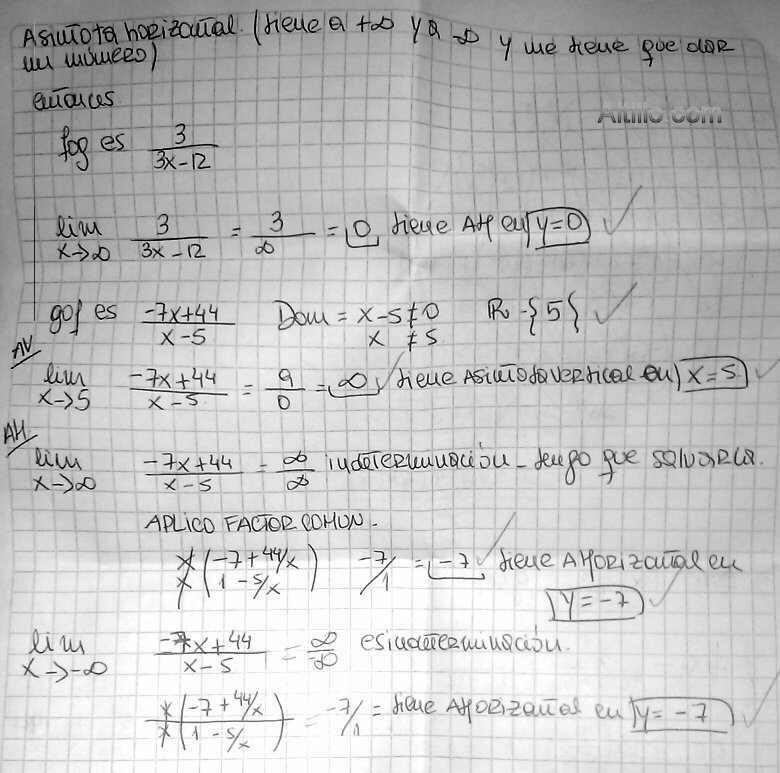 Asintota horizontal. (tiene a +∞ y a -∞ y me tiene que dar
un número)
entonces
Altillo.com
fog es 3/(3x-12)
lim x→∞ 3/(3x-12) = 3/∞ = 0 tiene AH en y=0 ✓
gof es (-7x+44)/(x-5) Dom = x-5≠0 R-{5} ✓
x ≠5
AV
lim x→5 (-7x+44)/(x-5) = 9/0 = ∞ ✓ tiene Asintota vertical en x=5 ✓
AH
lim x→∞ (-7x+44)/(x-5) = ∞/∞ indeterminación - tengo que salvarla.
APLICO FACTOR COMUN -
x(-7+44/x)/x(1-5/x) -7/1 = -7 ✓ tiene AHorizontal en
y=-7 ✓
lim x→-∞ (-7x+44)/(x-5) = ∞/-∞ es indeterminación.
x(-7+44/x)/x(1-5/x) = -7/1 = tiene AHorizontal en y=-7 ✓